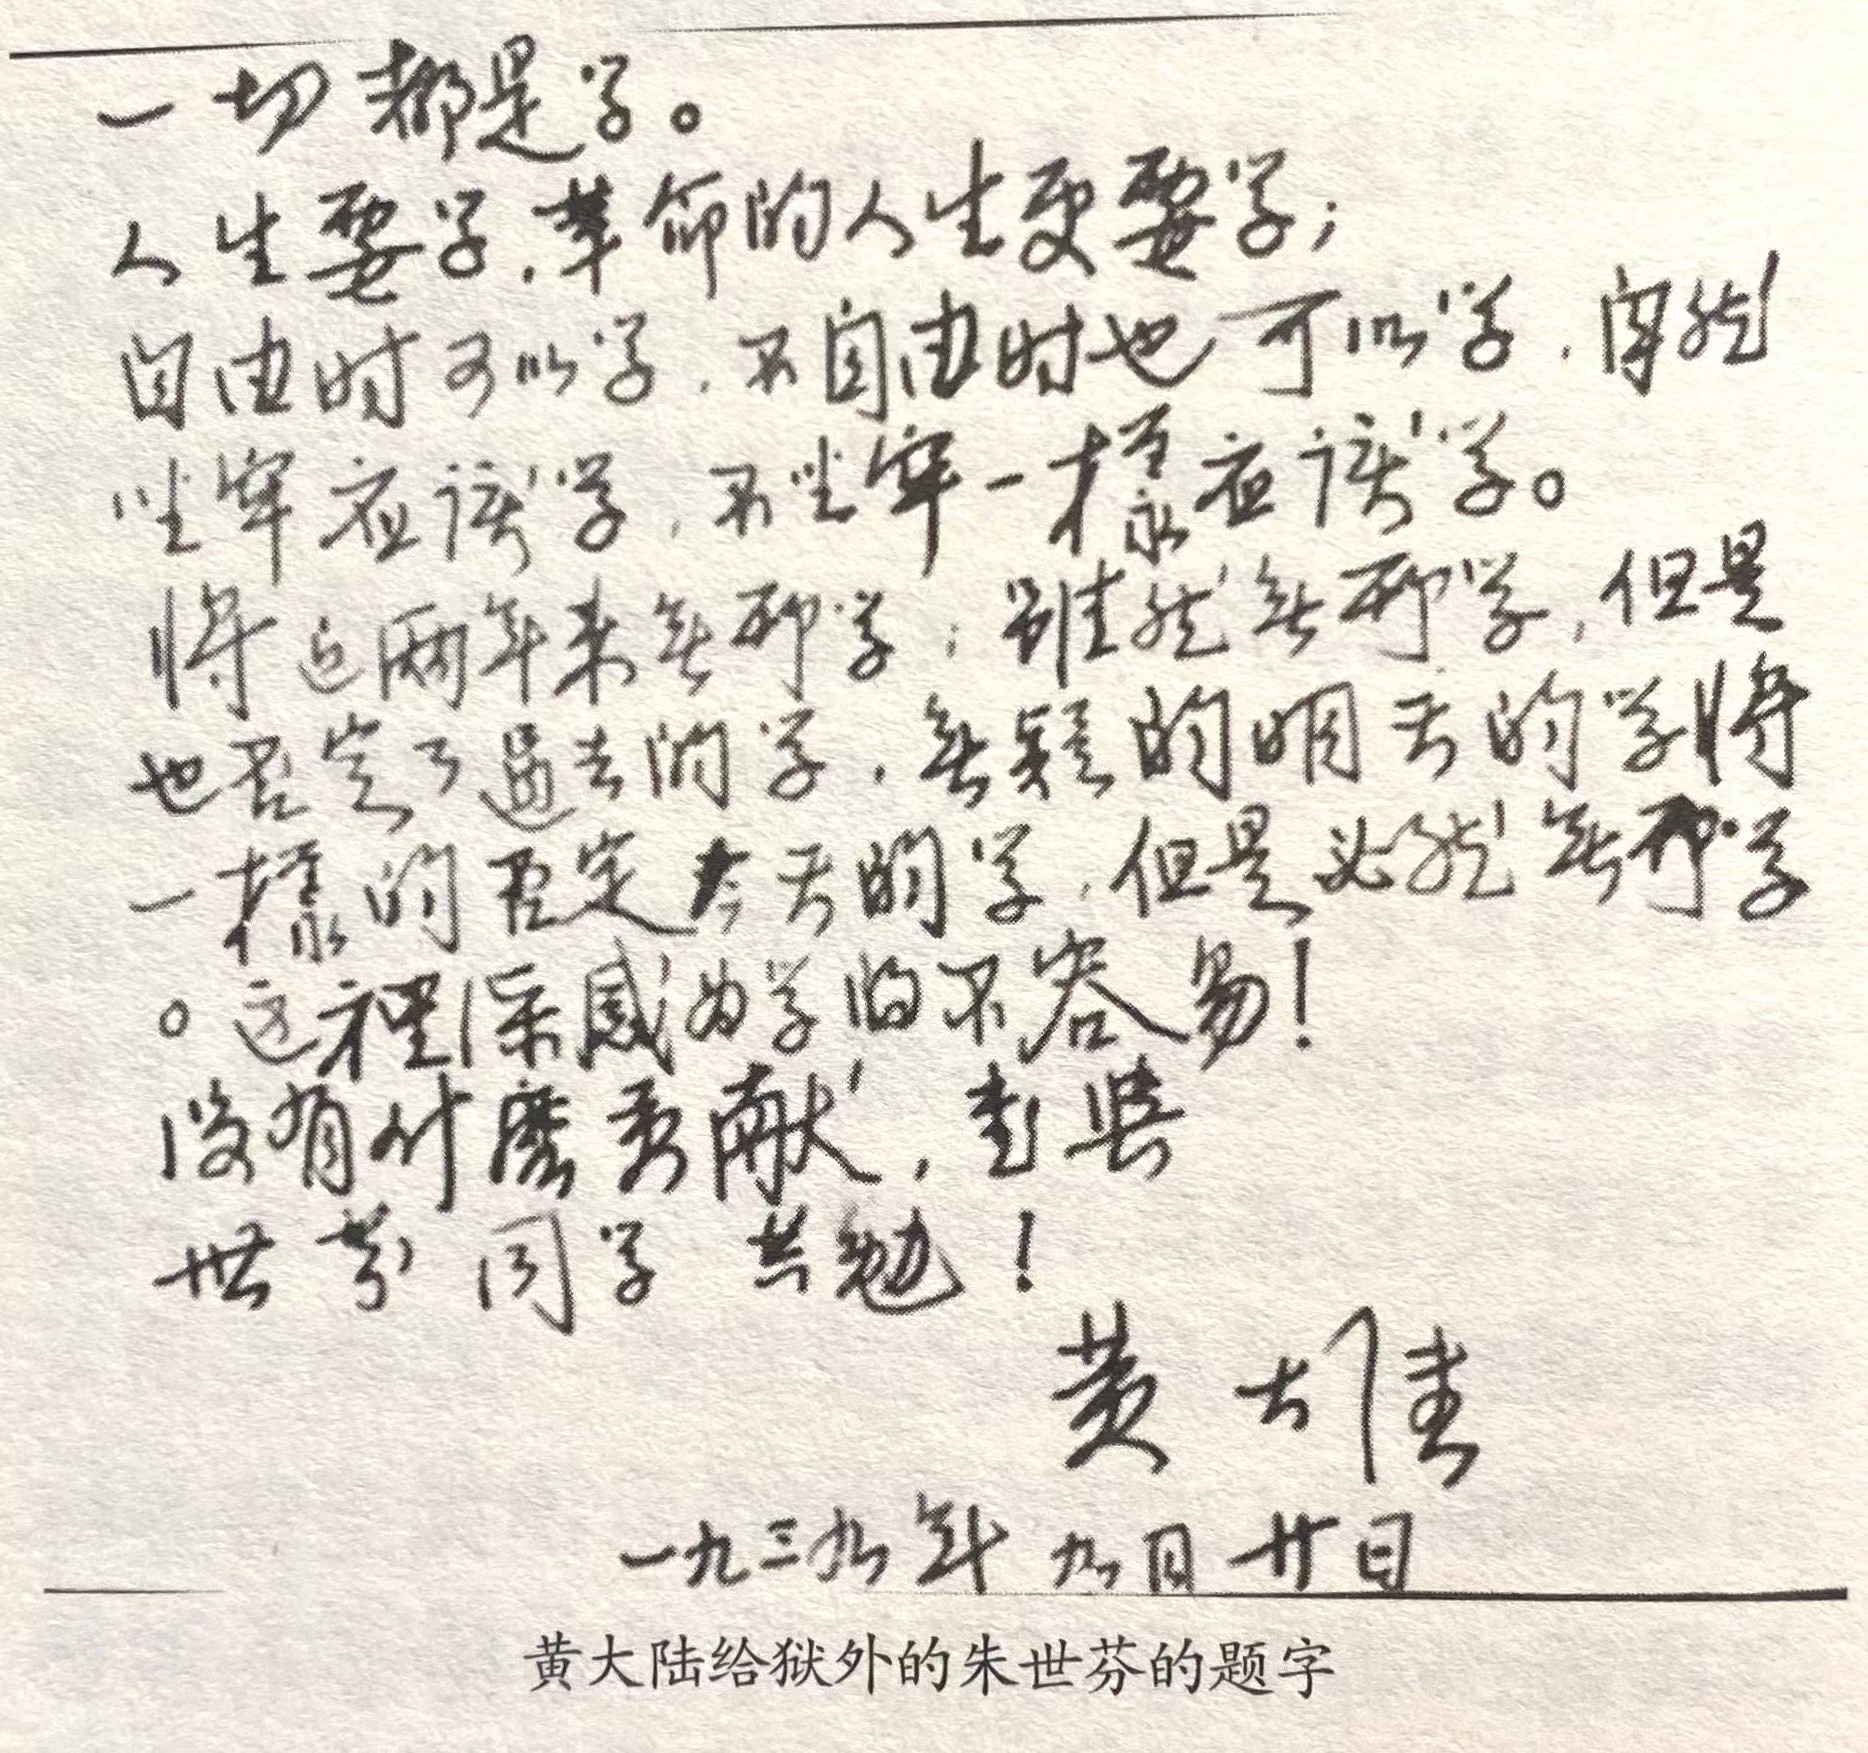 一切都是学。
人生要学,革命的人生更要学;
自由时可以学,不自由时也可以学,固然
坐牢应该学,不坐牢一樣应该学。
将近两年来無那学;雖然無那学,但是
也否定了過去的学,無疑的明天的学将
一樣的否定今天的学,但是必然無那学
。这裡深感为学的不容易!
没有什麽贡献,书與
世芬同学共勉!
黄大陆
一九三九年九月廿日
黄大陆给狱外的朱世芬的题字